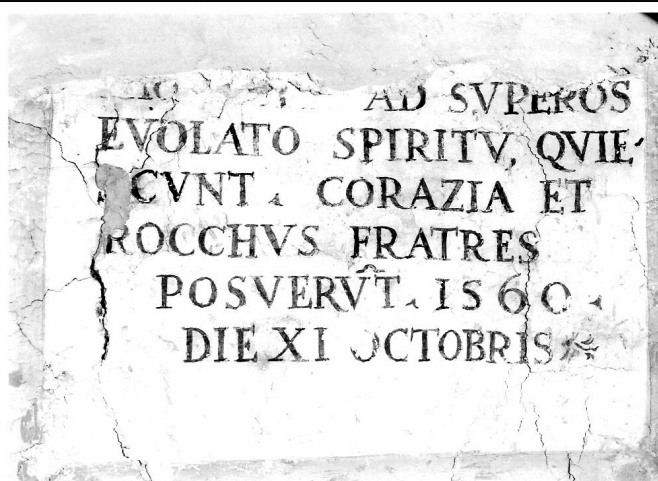 AD SVPEROS
EVOLATO SPIRITV, QVIE
SCVNT. CORAZIA ET
ROCCHVS FRATRES
POSVERV̂T. 1560.
DIE XI OCTOBRIS